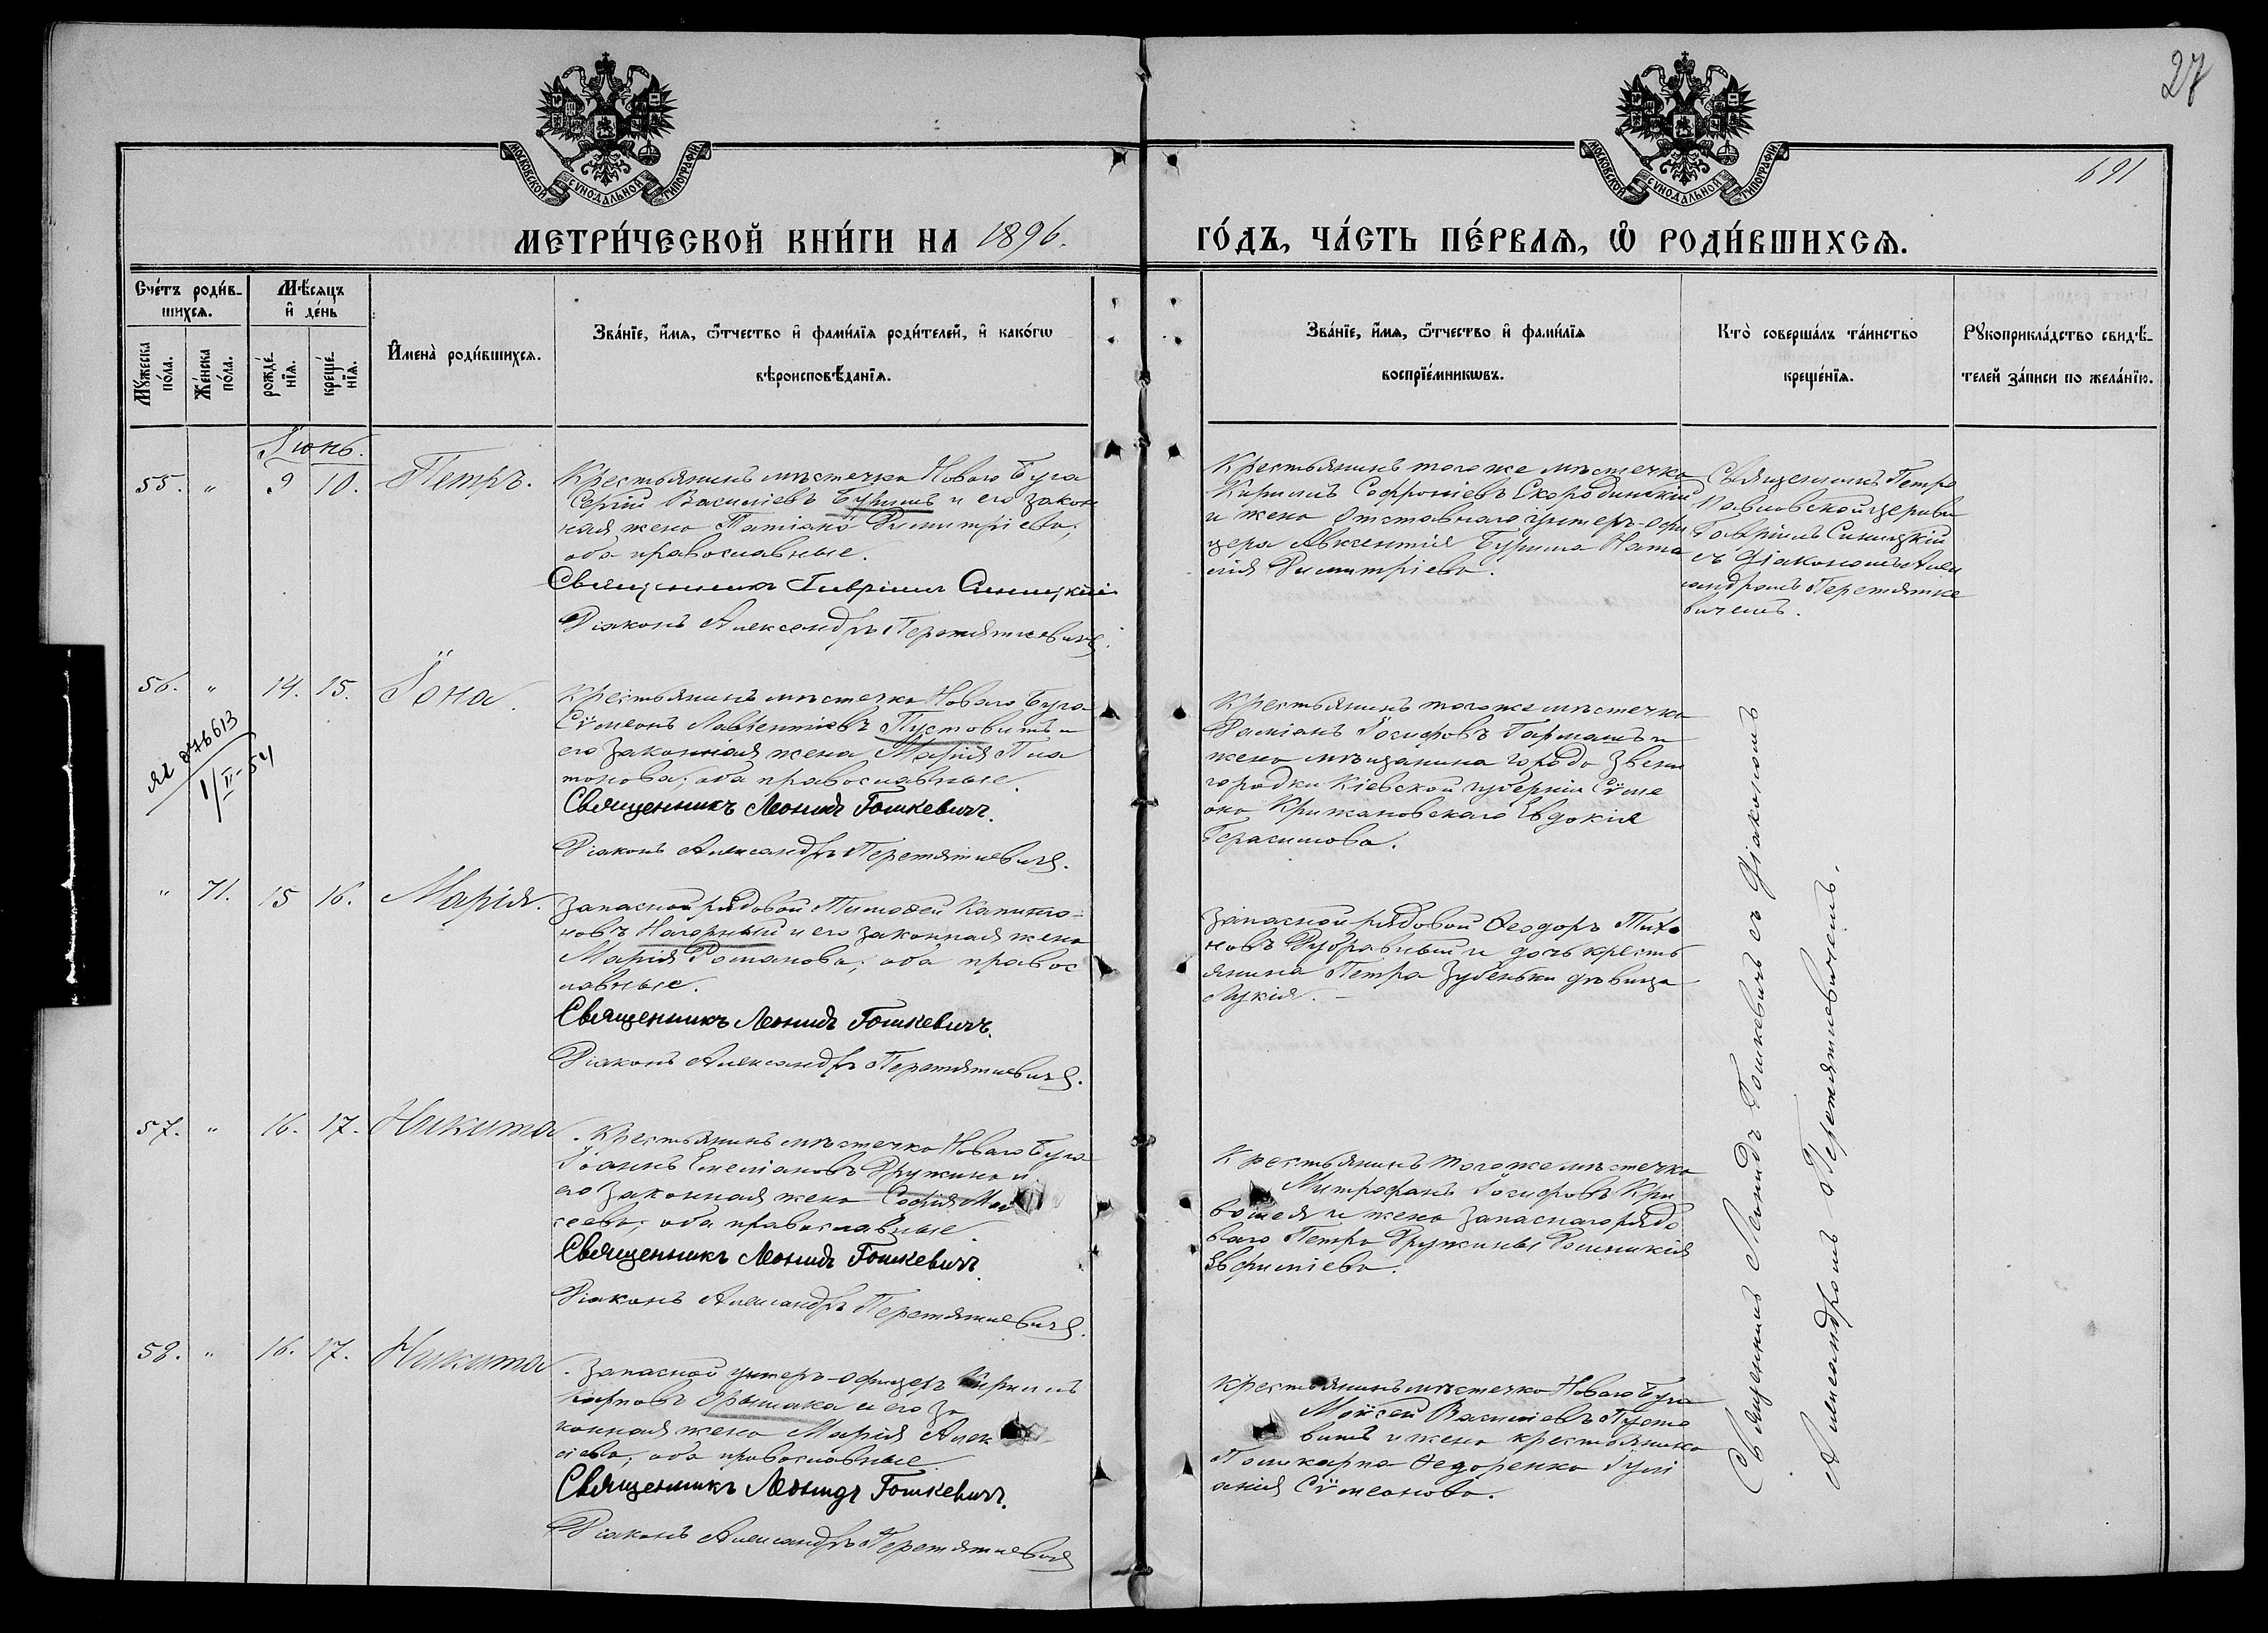 27
691
МОСКОВСКОЙ СѴНОДАЛЬНОЙ ТИПОГРАФІИ
МОСКОВСКОЙ СѴНОДАЛЬНОЙ ТИПОГРАФІИ
МЕТРИ́ЧЕСКОЙ КНИ́ГИ НА 1896. ГО́ДЪ, ЧА́СТЬ ПЕ́РВАѦ, Ѡ҆ РОДИ́ВШИХСѦ.
Сче́тъ роди́в-
шихсѧ.
Мѣсѧцъ
и҆ де́нь
Мꙋ́жеска
по́ла.
Же́нска
по́ла.
рожде́-
нїѧ.
креще́-
нїѧ.
И҆мена̀ роди́вшихсѧ.
Зва́нїе, и҆́мѧ, ѻ҆́тчество и҆ фами́лїѧ роди́телей, и҆ како́гѡ
вѣроисповѣ́данїѧ.
Зва́нїе, и҆́мѧ, ѻ҆́тчество и҆ фами́лїѧ
воспрїе́мникѡвъ.
Кто̀ соверша́лъ та́инство
креще́нїѧ.
Рꙋкоприкла́дство свидѣ́-
телей за́писи по жела́нїю.
Іюнь.
55. " 9 10. Петръ.
Крестьянинъ мѣстечка Новаго Буга
Сергій Василіевъ Буримъ и его закон
ная жена Татіана Димитріева;
оба православные.
Священникъ Гавріилъ Синицкій
Діаконъ Александръ Перетяткевичъ.
Крестьянинъ того же мѣстечка
Кириллъ Софроніевъ Скородинскій
и жена отставнаго унтеръ-офи
цера Авксентія Бурима Ната
лія Димитріева.
Священникъ Петро
Павловской церкви
Гавріилъ Синицкій
съ діакономъ Алек
сандромъ Перетятке
вичемъ.
56. " 14. 15. Іона.
1/II-54
Крестьянинъ мѣстечка Новаго Буга
Сѵмеонъ Лаврентіевъ Пустовитъ и
его законная жена Марія Пла
тонова; оба православные.
Священникъ Леонидъ Гошкевичъ.
Діаконъ Александръ Перетяткевичъ.
Крестьянинъ того же мѣстечка
Даміанъ Іосифовъ Гармашъ и
жена мѣщанина города Звени
городки Кіевской губерніи Сѵме
она Крижановскаго Евдокія
Герасимова.
" 71. 15 16. Марія.
Запасной рядовой Тимоѳей Капито-
новъ Нагорный и его законная жена
Марія Романова; оба правос
лавные.
Священникъ Леонидъ Гошкевичъ.
Діаконъ Александръ Перетяткевичъ.
Запасной рядовой Ѳеодоръ Тихо
новъ Дубравный и дочь кресть
янина Петра Зубенька дѣвица
Лукія.
57. " 16. 17. Никита.
Крестьянинъ мѣстечка Новаго Буга
Іоаннъ Емеліановъ Дружина и
его законная жена Софія Мои
сеева; оба православные.
Священникъ Леонидъ Гошкевичъ.
Діаконъ Александръ Перетяткевичъ.
Крестьянинъ того же мѣстечка
Митрофанъ Іосифовъ Кри
вошея и жена запаснаго рядо
ваго Петра Дружины Домникія
Евфиміева.
58. " 16. 17. Никита.
Запасной унтеръ-офицеръ Кириллъ
Карповъ и его за
конная жена Марія Алек
оба православные.
Священникъ Леонидъ Гошкевичъ.
Діаконъ Александръ Перетяткевичъ
Крестьянинъ мѣстечка Новаго Буга
Моѵсей Василіевъ Пусто
витъ и жена крестьянина
Поликарпа Ѳедоренко Іулі
анія Сѵмеонова.
Священникъ Леонидъ Гошкевичъ съ діакономъ
Александромъ Перетяткевичемъ.